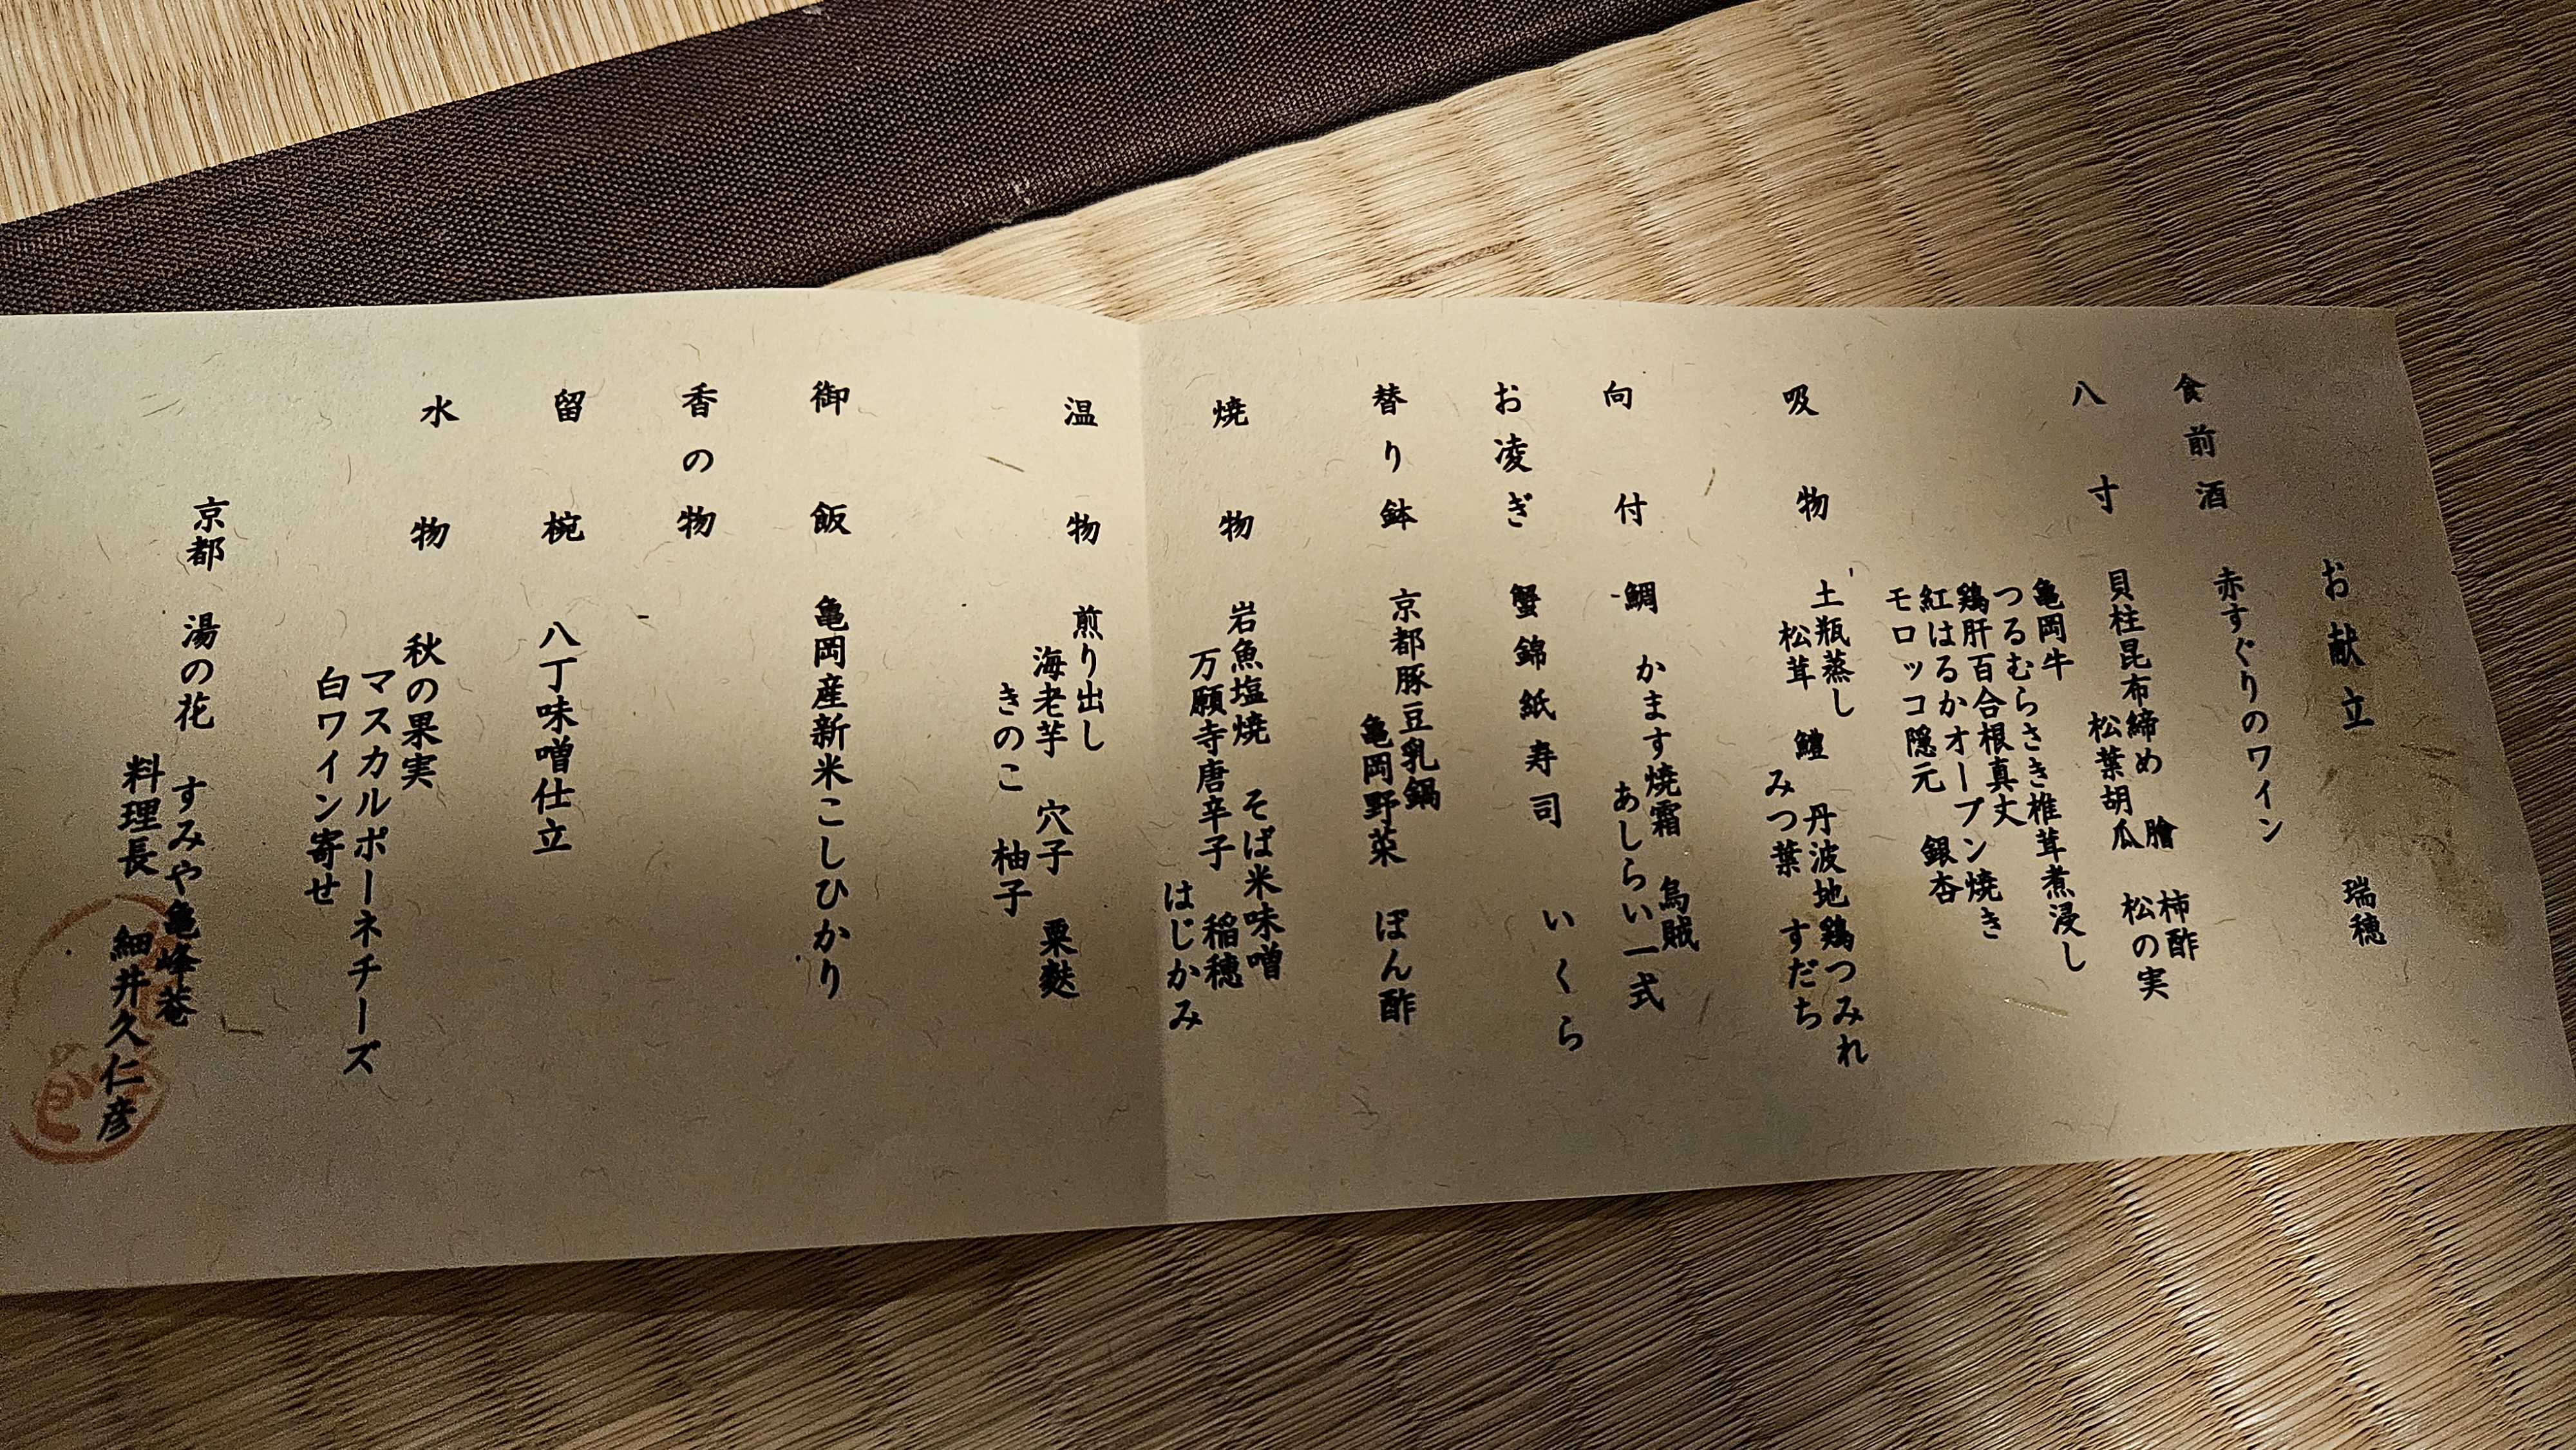 お献立　瑞穂
食前酒　赤すぐりのワイン
八寸　貝柱昆布締め　膾　柿酢
松葉胡瓜　松の実
亀岡牛
つるむらさき椎茸煮浸し
鶏肝百合根真丈
紅はるかオーブン焼き
モロッコ隠元　銀杏
吸物　土瓶蒸し　鱧　丹波地鶏つみれ
松茸　みつ葉　すだち
向付　鯛　かます焼霜　烏賊
あしらい一式
お凌ぎ　蟹錦紙寿司　いくら
替り鉢　京都豚豆乳鍋
亀岡野菜　ぽん酢
焼物　岩魚塩焼　そば米味噌
万願寺唐辛子　稲穂
はじかみ
温物　煎り出し
海老芋　穴子　粟麩
きのこ　柚子
御飯　亀岡産新米こしひかり
香の物
留椀　八丁味噌仕立
水物　秋の果実
マスカルポーネチーズ
白ワイン寄せ
京都　湯の花　すみや亀峰菴
料理長　細井久仁彦